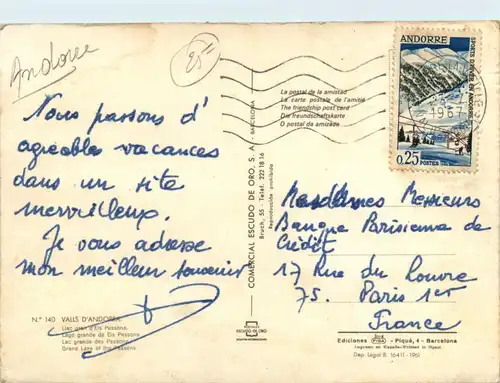 Andorre
25
Nous passons d'
agréables vacances
dans un site
merveilleux.
Je vous adresse
mon meilleur souvenir
Nº 140 VALLS D'ANDORRA
Llac gran d'Els Pessons.
Lago grande de Els Pessons
Lac grande des Pessons
Grand Lake of the Pessons
COMERCIAL ESCUDO DE ORO, S. A. - BARCELONA
Bruch, 55 - Teléf. 222 18 16
Reproducción prohibida
ESCUDO DE ORO
La postal de la amistad
La carte postale de l'amitié
The friendship post card
Die freundschaftskarte
O postal da amizade
ANDORRE
SPORTS D'HIVER EN ANDORRE
1967
0.25 POSTES
Mesdames Messieurs
Banque Parisienne de
Crédit
17 Rue du Louvre
75. Paris 1er
France
Ediciones FISA - Piqué, 4 - Barcelona
Dep. Legal B. 16411-1961